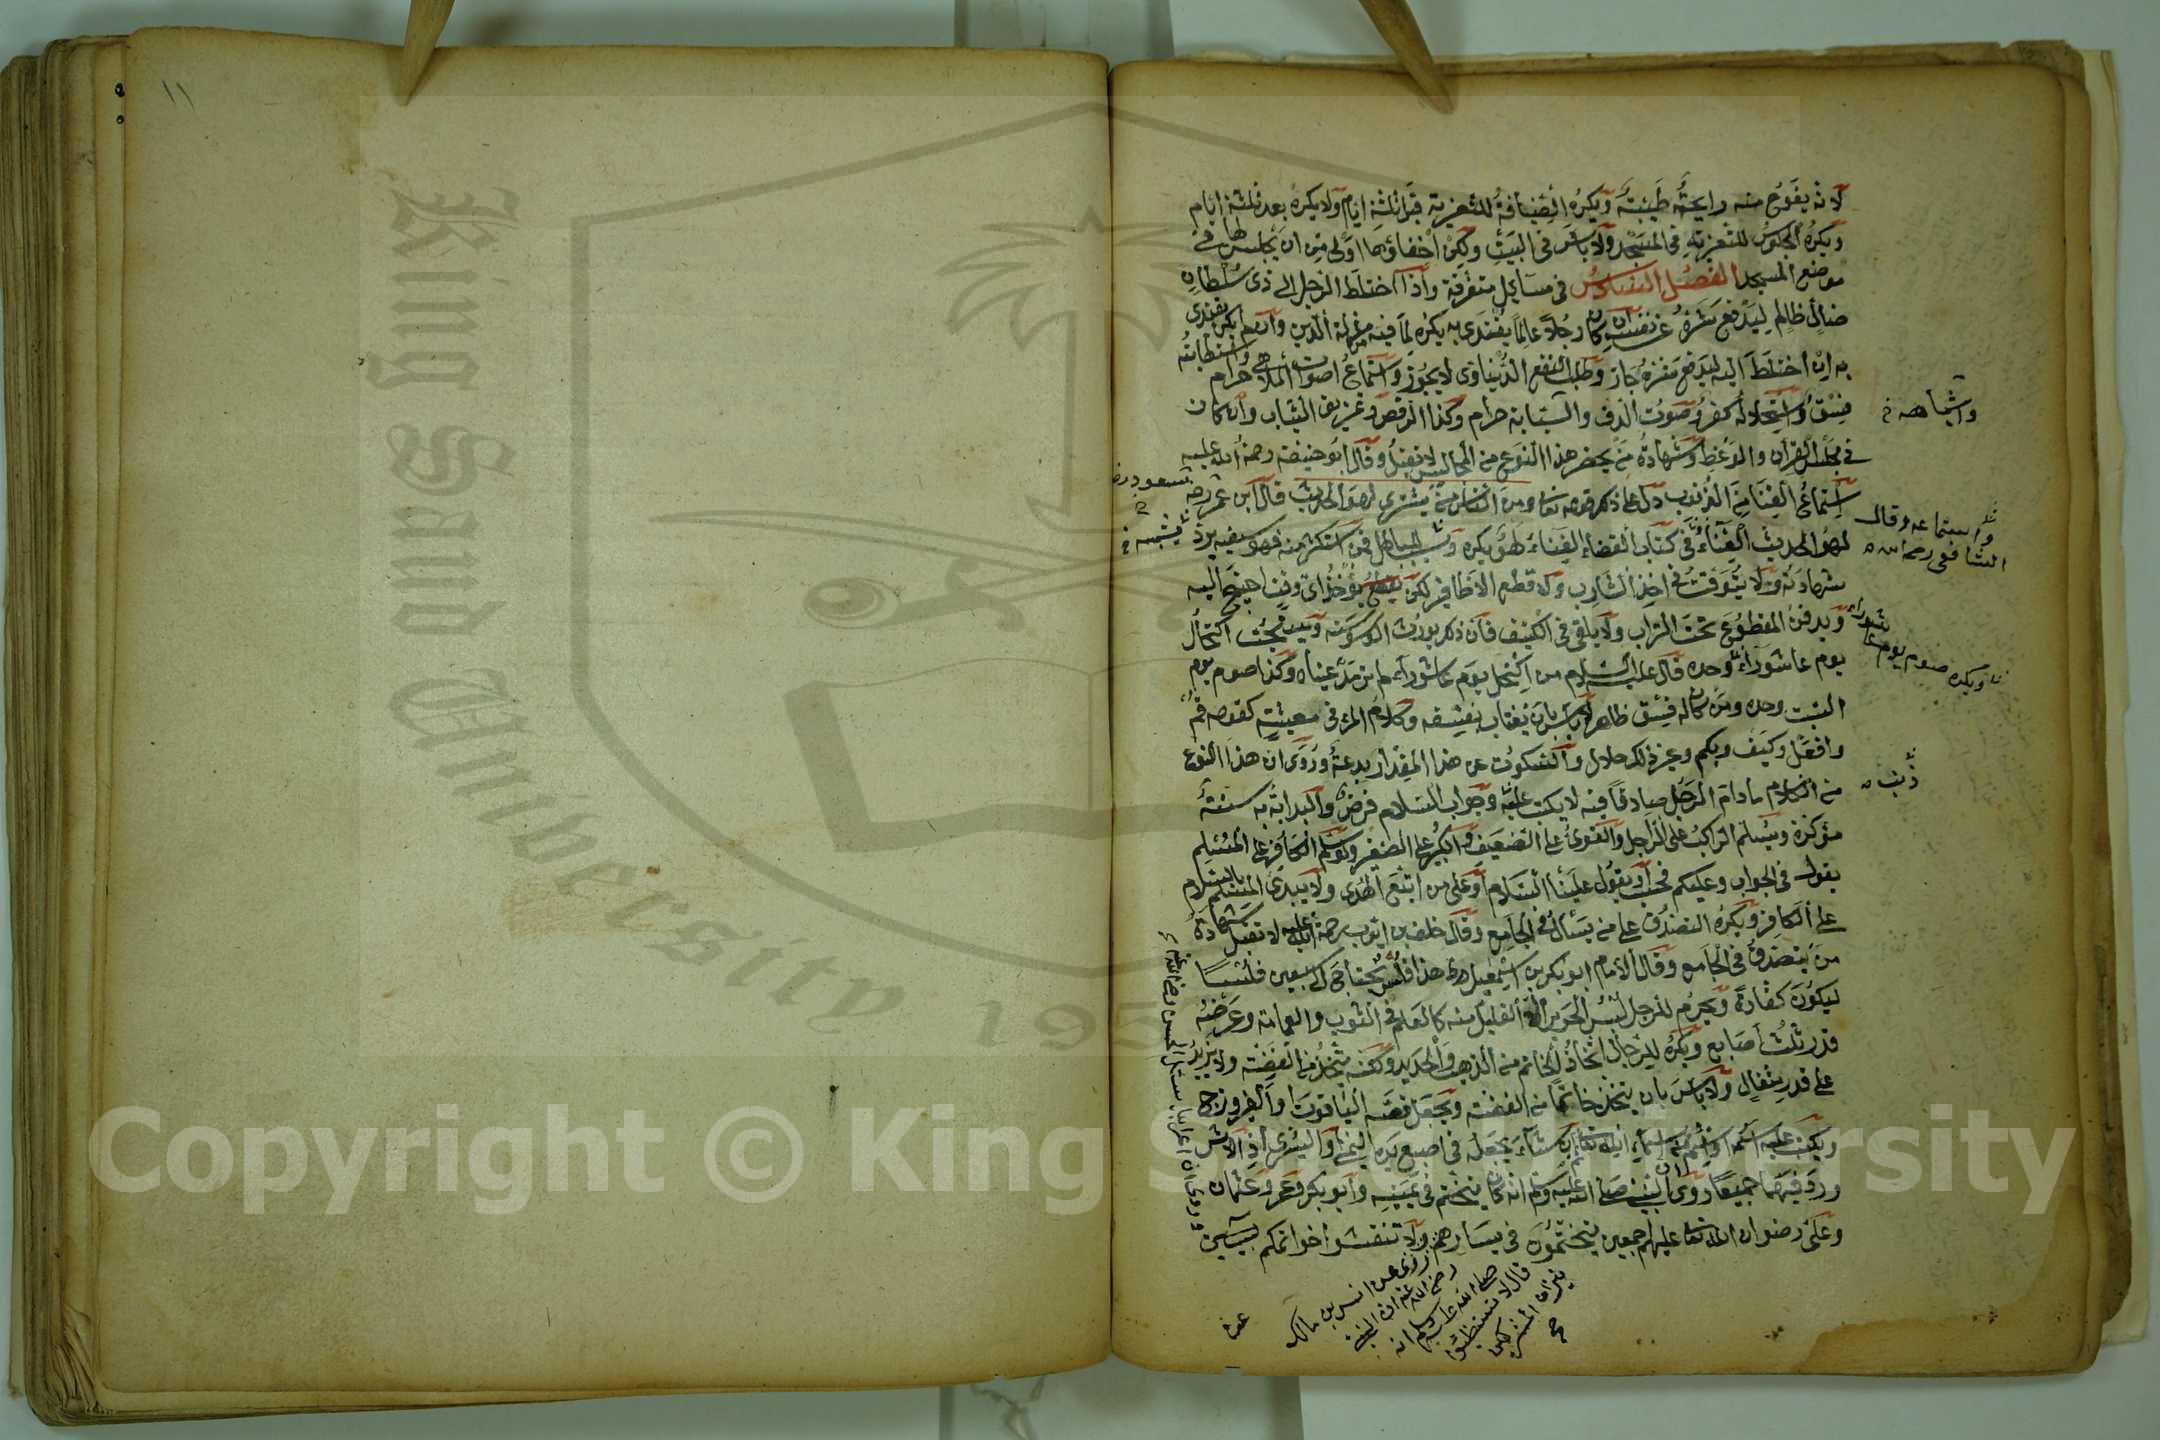 لانه يفوح منه رايحة طيبة ويكره الضيافة للتعزية قبل ثلثة ايام ولا يكره بعد ثلثة ايام
ويكره الجلوس للتعزية في المسجد ولا باس في البيت ولكن اخفاؤها اولى من ان يجلس لها في
موضع المسجد الفصل السادس في مسايل متفرقة واذا اختلط الرجل الى ذى سلطان
ظالم ليدفع شره عن نفسه ان كان رجلا عالما يقتدى به يكره لما فيه مذلة الدين وان لم يكن يقتدى
به ان اختلط اليه ليدفع شره جاز وطلب النفع الدنياوى لا يجوز واستماع اصوات الملاهى حرام واستطابته
فسق واستحلاله كفر وصوت الدف والشبابة حرام وكذا الرقص وتمزيق الثياب وان كان
في مجلس القران والوعظ وشهادة من يحضر هذا النوع من المجالس لا تقبل وقال ابو حنيفة رحمة الله عليه
استماع الغنا من الذنوب دل على ذكر قوله تعا ومن الناس من يشترى لهو الحديث قال ابن عمر رضه
لهو الحديث الغناء وفي كتاب القضاء الغناء لهو يكره يشبه الباطل فمن استكثر منه فهو سفيه يرد
شهادته ولا يتوقت في اخذ الشارب ولا قطع الاظافير لكن يؤخذ اى وقت احتيج اليه
ويدفن المقطوع تحت التراب ولا يلقى في الكنيف فان ذكر يورث الوسوسة ويستحب اكتحال
يوم عاشوراء وحده قال عليه السلام من اكتحل يوم عاشوراء لم ترمد عيناه وكذا صوم يوم
السبت وحده ومن كان له فسق ظاهر لا باس بان يغتاب بفسقه وكلام المرء في معيشته كقوله قم
وافعل وكيف وبكم وغير ذلك حلال والسكوت عن هذا المقدار بدعة وروى ان هذا النوع
من الكلام مادام الرجل صادقا فيه لا يكتب عليه وجواب السلام فرض والبداية به سنة
مؤكدة ويسلم الراكب على الراجل والقوى على الضعيف والكبير على الصغير ولو سلم الكافر على المسلم
يقول في الجواب وعليكم فحسب او يقول علينا السلام او على من اتبع الهدى ولا يبدئ المسلم بالسلام
على الكافر ويكره التصدق على من يسأل في الجامع وقال خلف بن ايوب رحمة الله عليه لا تقبل شهادة
من يتصدق في الجامع وقال الامام ابو بكر بن اسمعيل هذا فلس يحتاج الى سبعين فلسا
ليكون كفارة ويحرم للرجل لبس الحرير الا القليل منه كالعلم في الثوب والعمامة وعرضه
قدر ثلث اصابع ويكره للرجال اتخاذ الخاتم من الذهب والحديد ولكنه يتخذ من الفضة ولا يزيد
على قدر مثقال ولا باس بان يتخذ خاتما من الفضة ويجعل فصه الياقوت او الفيروزج
ويكتب عليه اسمه او اسم من اسماء الله تعا ان شاء يجعله في اصبع يده اليمنى او اليسرى اذ الاثر
ورد فيهما جميعا روى ان النبي صلى الله عليه وسلم انه كان يتختم في يمينه وابو بكر وعمر وعثمان
وعلى رضوان الله تعا عليهم اجمعين يتختمون في يسارهم ولا تنقشوا خواتمكم
واشباهه
واستماعه وقال
الشافعى رحمه الله
مسعود رض
يشبه
ويكره صوم يوم عاشوراء
ذنب
روى عن انس بن مالك
رضى الله عنه ان النبي
صلى الله عليه وسلم انه
قال لا تستضيئوا
بنيران المشركين
صح
١١
King Saud University
195
Copyright © King Saud University